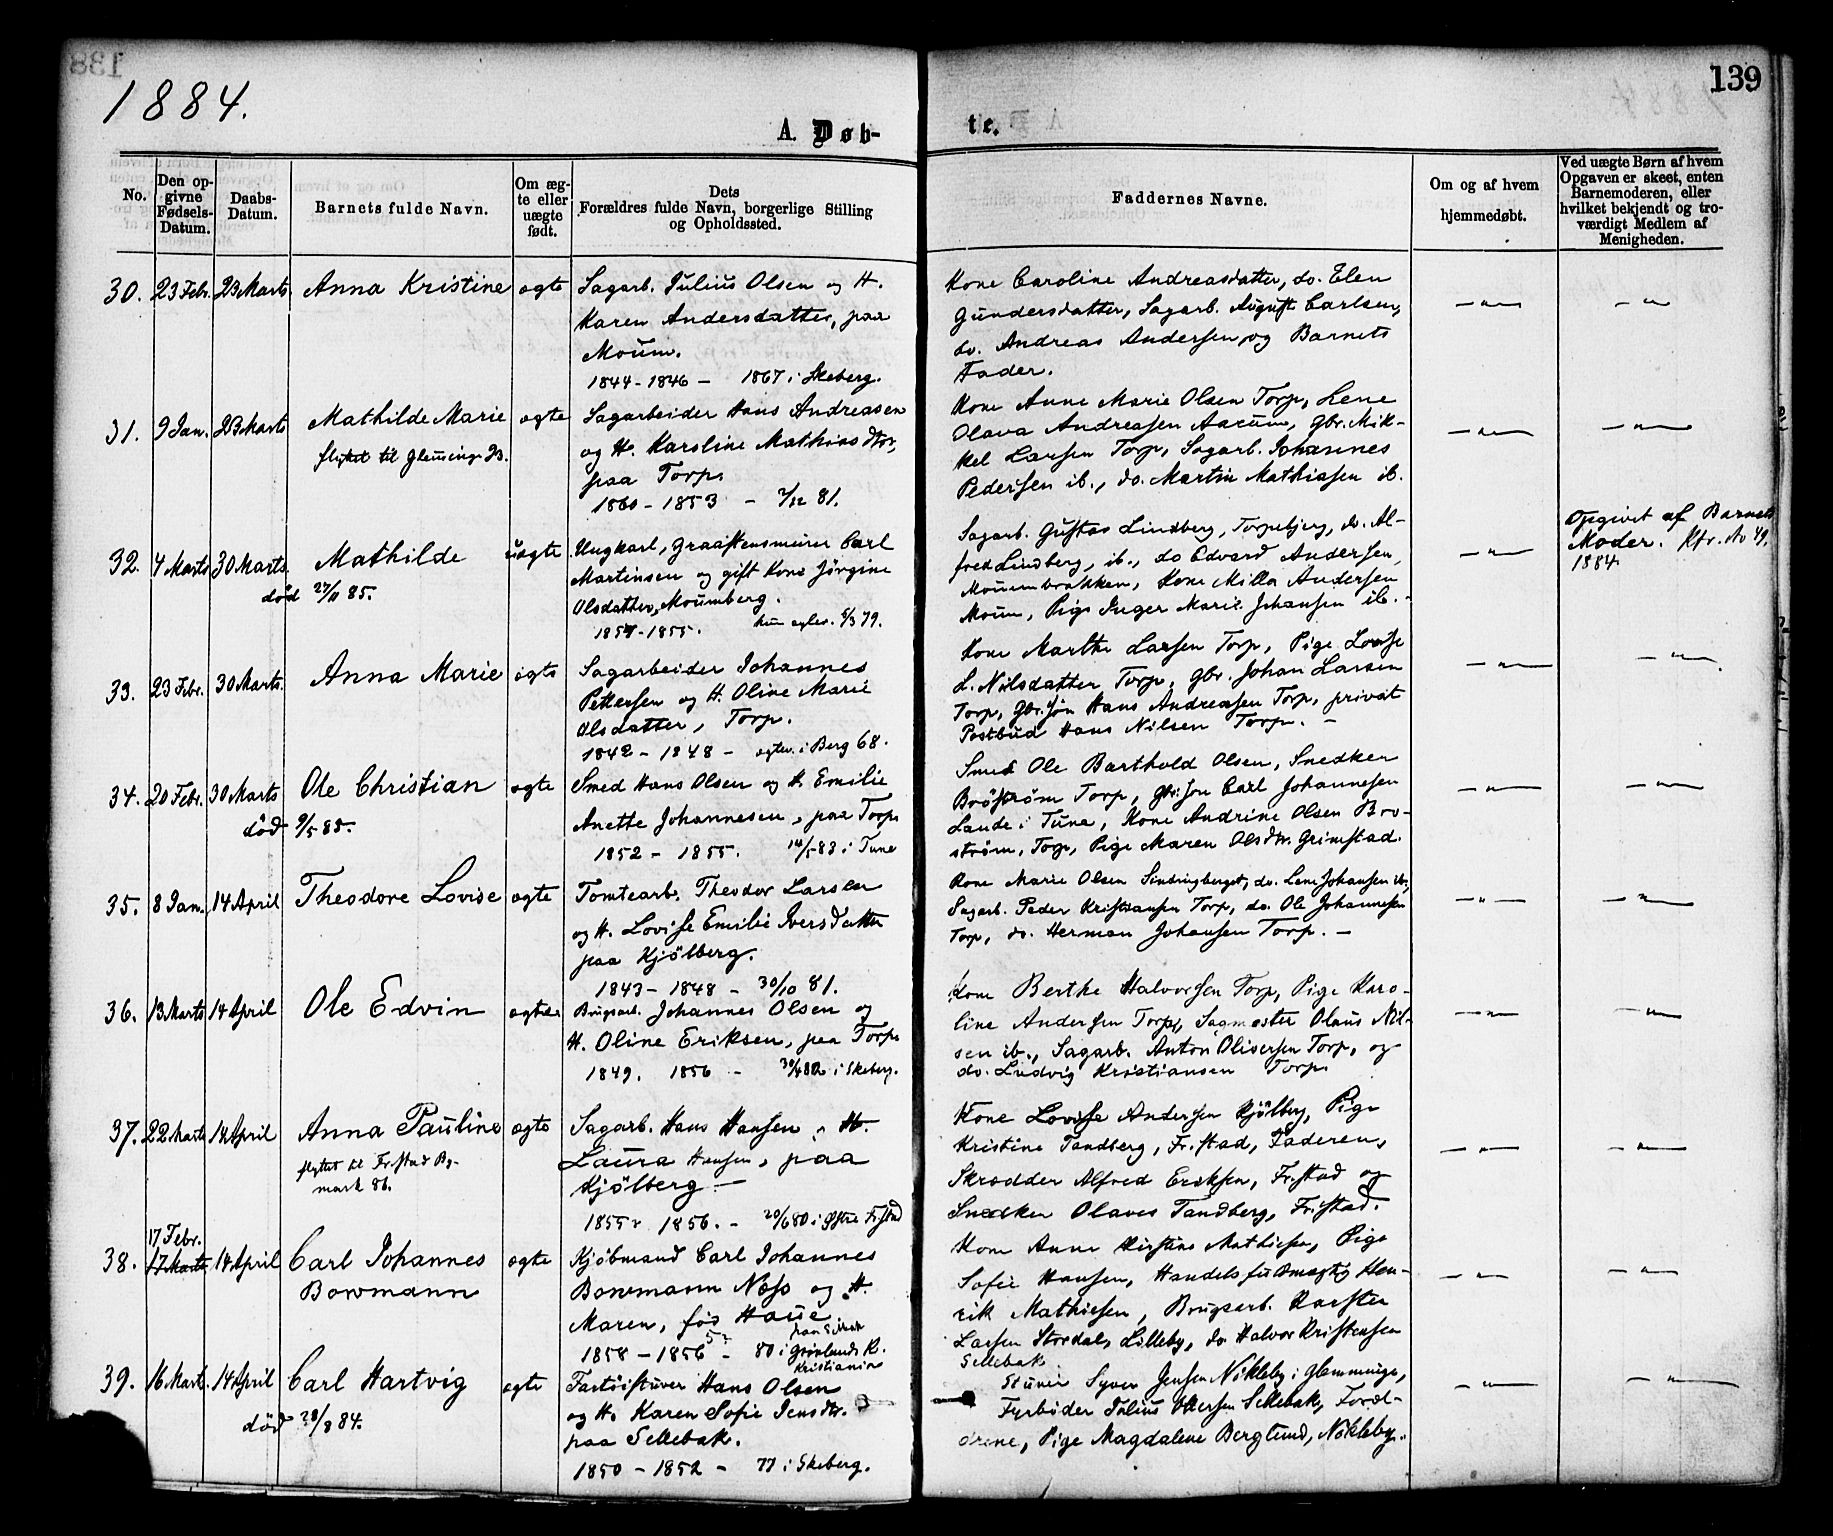 138
139
1884.
A. Døb-
te.
No.
Den op-
givne
Fødsels-
Datum.
Daabs-
Datum.
Barnets fulde Navn.
Om æg-
te eller
uægte
født.
Dets
Forældres fulde Navn, borgerlige Stilling
og Opholdssted.
Faddernes Navne.
Om og af hvem
hjemmedøbt.
Ved uægte Børn af hvem
Opgaven er skeet, enten
Barnemoderen, eller
hvilket bekjendt og tro-
værdigt Medlem af
Menigheden.
30. 23 Febr. 23 Marts. Anna Kristine ægte
Sagarb. Julius Olsen og H.
Karen Andersdatter, paa
Moum.
1844-1846 - 1867 i Skeberg.
Kone Caroline Andreasdatter, do. Elen
Gundersdatter, Sagarb. August Carlsen,
do. Andreas Andersen, og Barnets
Fader.
— " — — " —
31. 9 Jan. 23 Marts Mathilde Marie ægte
flyttet til Glemminge
Sagarbeider Hans Andreasen
og H. Karoline Mathiasdtr,
paa Torp.
1860 - 1853 - 7/12 81.
Kone Anne Marie Olsen Torp, Lene
Olava Andreasen Aarum, Gbr. Mik-
kel Larsen Torp, Sagarb. Johannes
Pedersen ib., do. Martin Mathiasen ib.
— " — — " —
32. 4 Marts 30 Marts Mathilde uægte
død 27/11 85.
Ungkarl, Graastensmurer Carl
Martinsen og gift Kone Jørgine
Olsdatter, Moumberg.
1857-1855. 5/3 79.
Sagarb. Gustav Lindberg, Torpebjerg, do. Al-
fred Lindberg, ib., do Edvard Andersen,
Moumbrækken, Kone Milla Andersen
Moum, Pige Inger Marie Johansen ib. -
— " —
Opgivet af Barnets
Moder. Kfr. No 49,
1884.
33. 23 Febr. 30 Marts. Anna Marie ægte
Sagarbeider Johannes
Pettersen og H. Oline Marie
Olsdatter, Torp.
1842 - 1848 - i Berg 68.
Kone Marthe Larsen Torp, Pige Lovise
L. Nilsdatter Torp, Gbr. Johan Larsen
Torp, Gbr.søn Hans Andreasen Torp, privat
Postbud Hans Nilsen Torp. -
— " — — " —
34. 20 Febr. 30 Marts Ole Christian ægte
død 9/5 85.
Smed Hans Olsen og H. Emilie
Anette Johannesen, paa Torp
1852 - 1855. 14/5 83 i Tune
Smed Ole Barthold Olsen, Snedker
Brøstrøm Torp, Gbr.søn Carl Johannesen
Lande i Tune, Kone Andrine Olsen Bro-
strøm, Torp, Pige Maren Olsdtr. Grimstad.
— " — — " —
35. 8 Jan. 14 April Theodore Lovise ægte
Tomtearb. Theodor Larsen
og H. Lovise Emilie Iversdatter
paa Kjölberg.
1843 - 1848 - 30/10 81.
Kone Marie Olsen, do. Lene Johansen ib,
Sagarb. Peder Kristiansen Torp, do. Ole Johannesen
Torp, do. Herman Johansen Torp. -
— " — — " —
36. 13 Marts 14 April Ole Edvin ægte
Brugsarb. Johannes Olsen og
H. Oline Eriksen, paa Torp
1849. 1856 - 30/4 82 i Skeberg.
Kone Berthe Halvorsen Torp, Pige Karo-
line Andersen Torp, Sagmester Olaus Nil-
sen ib., Sagarb. Anton Oliversen Torp, og
do. Ludvig Kristiansen Torp.
— " — — " —
37. 22 Marts 14 April Anna Pauline ægte
flyttet til Fr.stad By-
mark 86.
Sagarb. Hans Hansen og H.
Laura Hansen, paa
Kjölberg —
1855 1856. - 20/6 80 i Østre Fr.stad
Kone Lovise Andersen Kjölberg, Pige
Kristine Tandberg, Fr.stad, Faderen,
Skrædder Alfred Eriksen, Fr.stad og
Snedker Olaves Tandberg, Fr.stad.
— " — — " —
17 Febr.
38. 17 Marts 14 April Carl Johannes
Bowmann ægte
Kjøbmand Carl Johannes
Bowmann Næss og H.
Maren, fød Haue
paa Sellebak
1858 - 1856 - 80 i Grønlands K.
Kristiania
Kone Anne Kirstine Mathisen, Pige
Sofie Hansen, Handelsfuldmægtig Hen-
rik Mathisen, Brugsarb. Karsten
Larsen Stordal, Lilleby, do Halvor Kristensen
Sellebak
— " — — " —
39. 16 Marts. 14 April Carl Hartvig ægte
død 28/8 84.
Fartöistuver Hans Olsen
og H. Karen Sofie Jensdtr.
paa Sellebak.
1850 - 1852 - 77 i Skeberg.
Stuver Syver Jensen Nökleby i Glemminge,
Fyrböder Julius Ottersen Sellebak, Foræl-
drene, Pige Magdalene Berglund, Nökleby.
— " — — " —